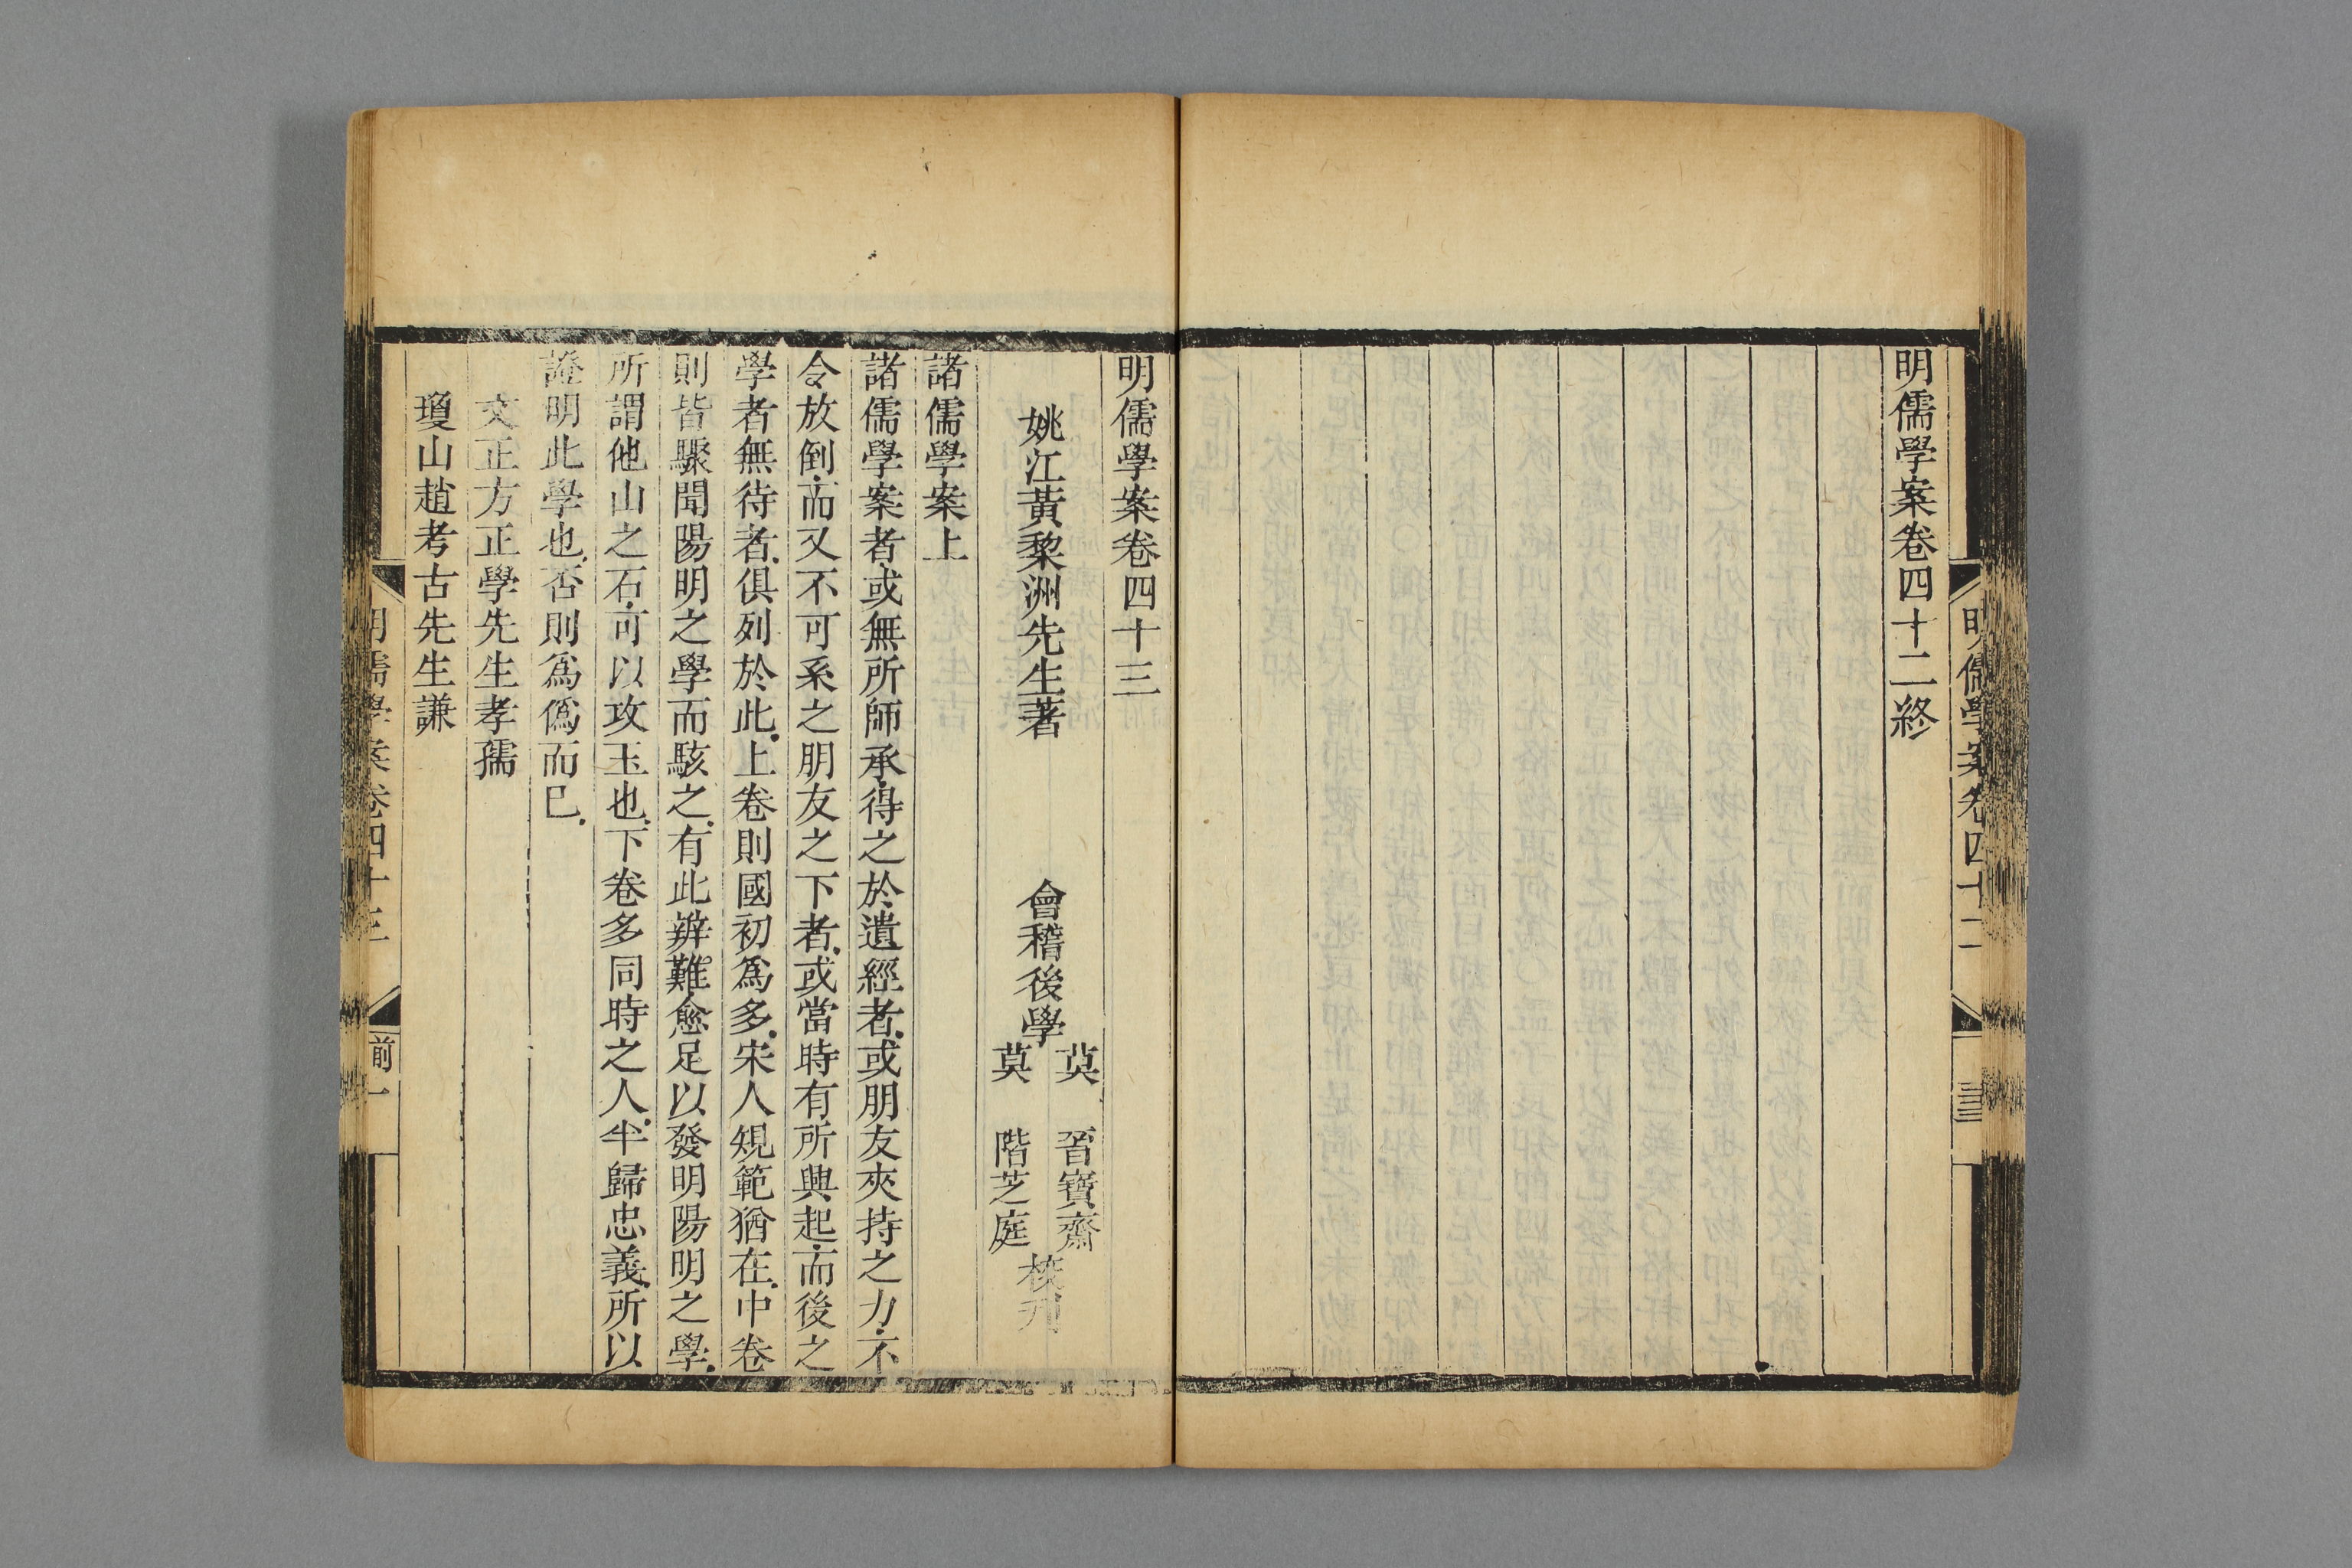 明儒學案卷四十二終
明儒學案卷四十二
明儒學案卷四十三
姚江黃黎洲先生著　會稽後學
莫　晉寶齋
莫　階芝庭
校刊
諸儒學案上
諸儒學案者或無所師承得之於遺經者或朋友夾持之力不
令放倒而又不可系之朋友之下者或當時有所興起而後之
學者無待者俱列於此上卷則國初爲多宋人規範猶在中卷
則皆驟聞陽明之學而駭之有此辨難愈足以發明陽明之學
所謂他山之石可以攻玉也下卷多同時之人半歸忠義所以
證明此學也否則爲僞而已
文正方正學先生孝孺
瓊山趙考古先生謙
明儒學案卷四十三
前一